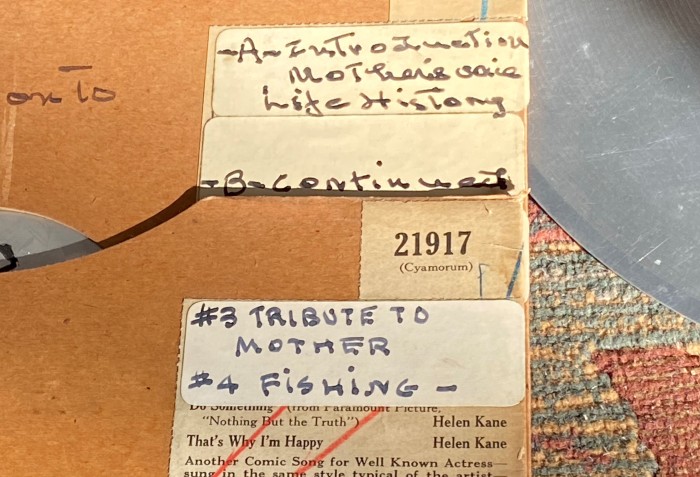 -A-Introduction
Mother's voice
Life History
on To
-B-continued
21917
(Cyamorum)
#3 TRIBUTE TO
MOTHER
#4 FiSHiNG -
Do Something (from Paramount Picture,
"Nothing But the Truth") Helen Kane
That's Why I'm Happy Helen Kane
Another Comic Song for Well Known Actress—
sung in the same style typical of the artist—